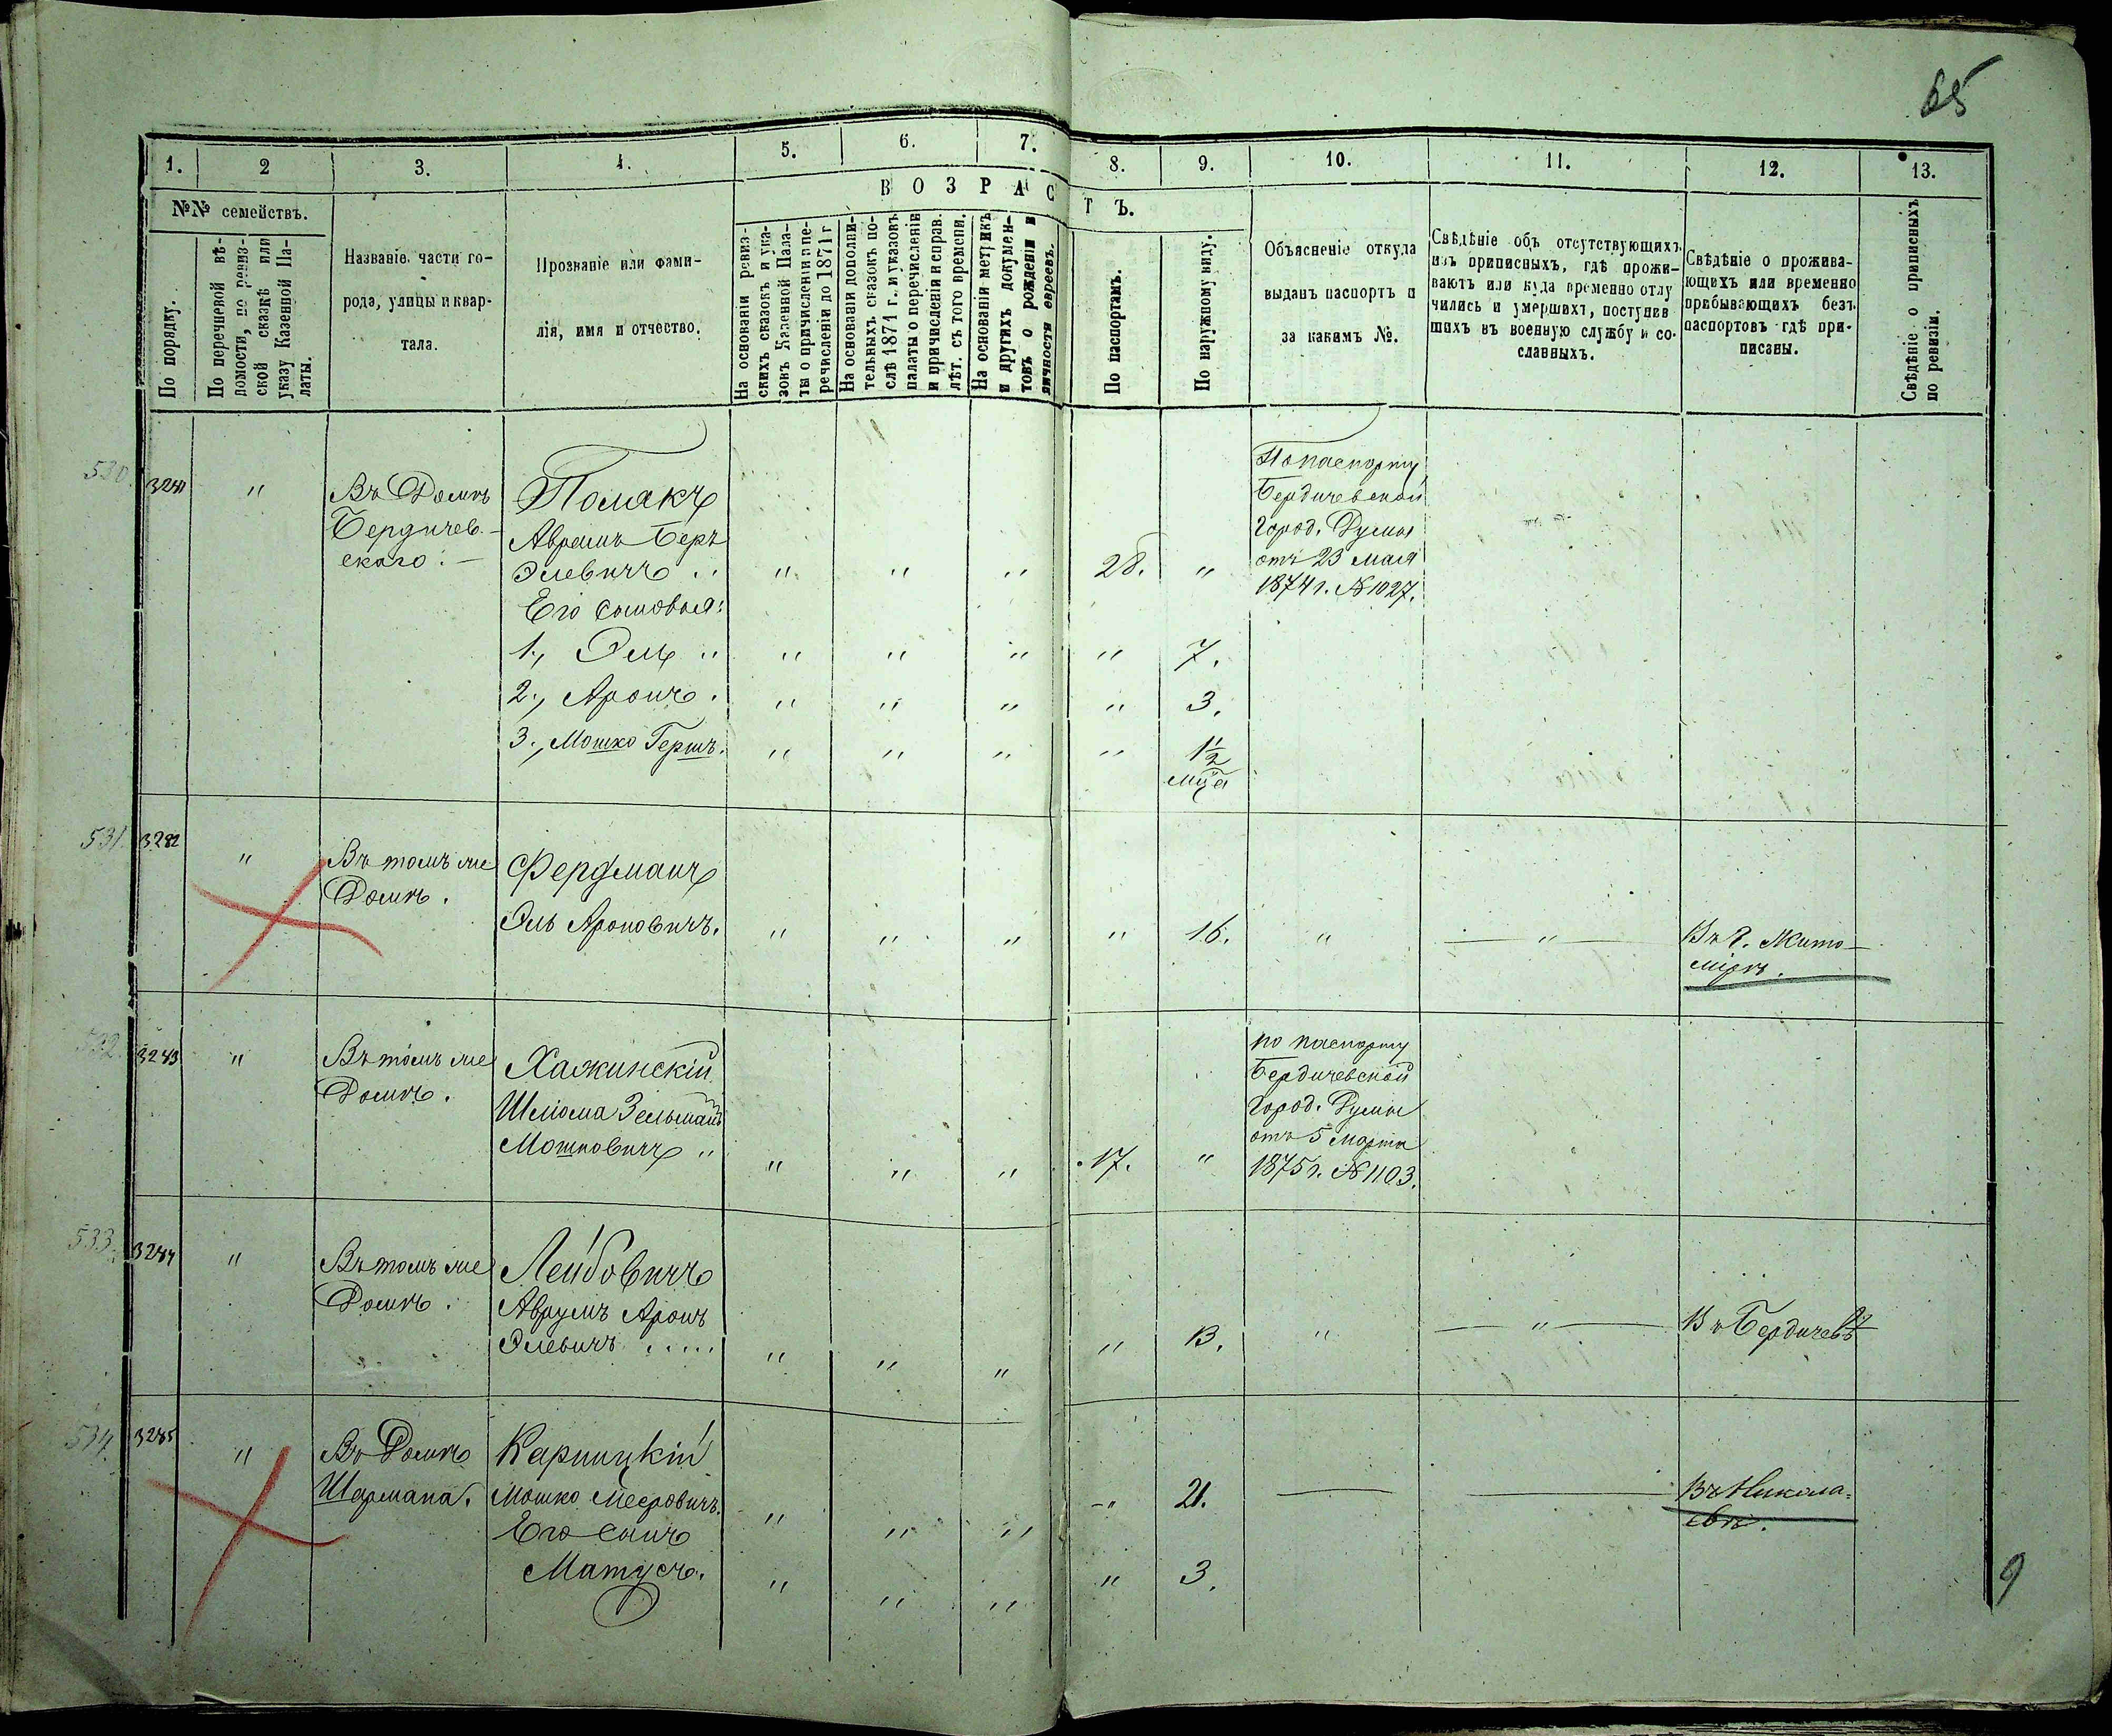 65
1. 2 3. 4. 5. 6. 7. 8. 9. 10. 11. 12. 13.
В О З Р А С Т Ъ.
№№ семействъ.
По порядку.
По перечневой вѣ-
домости, по ревиз-
ской сказкѣ или
указу Казенной Па-
латы.
Названіе части го-
рода, улицы и квар-
тала.
Прозваніе или фами-
лія, имя и отчество.
На основаніи ревиз-
скихъ сказокъ и ука-
зовъ Казенной Пала-
ты о причисленіи и пе-
речисленіи до 1871 г
На основаніи дополни-
тельныхъ сказокъ по-
слѣ 1871 г. и указовъ
палаты о перечисленіи
и причисленіи и справ.
лѣт. съ того времени.
На основаніи метрикъ
и другихъ докумен-
товъ о рожденіи и
личности евреевъ.
По паспортамъ.
По наружному виду.
Объясненіе откуда
выданъ паспортъ и
за какимъ №.
Свѣдѣніе объ отсутствующихъ
изъ приписныхъ, гдѣ прожи-
ваютъ или куда временно отлу
чились и умершихъ, поступив
шихъ въ военную службу и со-
сланныхъ.
Свѣдѣніе о прожива-
ющихъ или временно
прибывающихъ безъ
паспортовъ гдѣ при-
писаны.
Свѣдѣніе о приписныхъ
по ревизіи.
530. 3281 " Въ Домѣ
Бердичев-
скаго. —
Полякъ
Аврамъ Беръ
Элевичъ " " " 28. "
По паспорту
Бердичевской
Город. Думы
отъ 23 мая
1874 г. № 1027.
Его сыновья:
1., Эль " " " " 7.
2., Аронъ. " " " " 3.
3., Мошко Гершъ. " " " " 1 1/2
мца
531. 3282 " Въ томъ же
Домѣ.
Фердманъ
Эль Ароновичъ. " " " " 16. " — " — Въ г. Жито-
мірѣ.
532. 3283 " Въ томъ же
Домѣ.
Хажинскій
Шліома Зельманъ
Мошковичъ " " " " 17. "
по паспорту
Бердичевской
Город. Думы
отъ 5 Марта
1875 г. № 1103.
533. 3284 " Въ томъ же
Домѣ.
Лейбовичъ
Аврумъ Аронъ
Элевичъ ..... " " " " 13. " — " — Въ Бердичевѣ
534. 3285 " Въ Домѣ
Шармана.
Карпицкій
Мошко Мееровичъ. " " " -" 21. — — Въ Никола-
евѣ.
Его сынъ
Матусъ. " " " " 3.
9